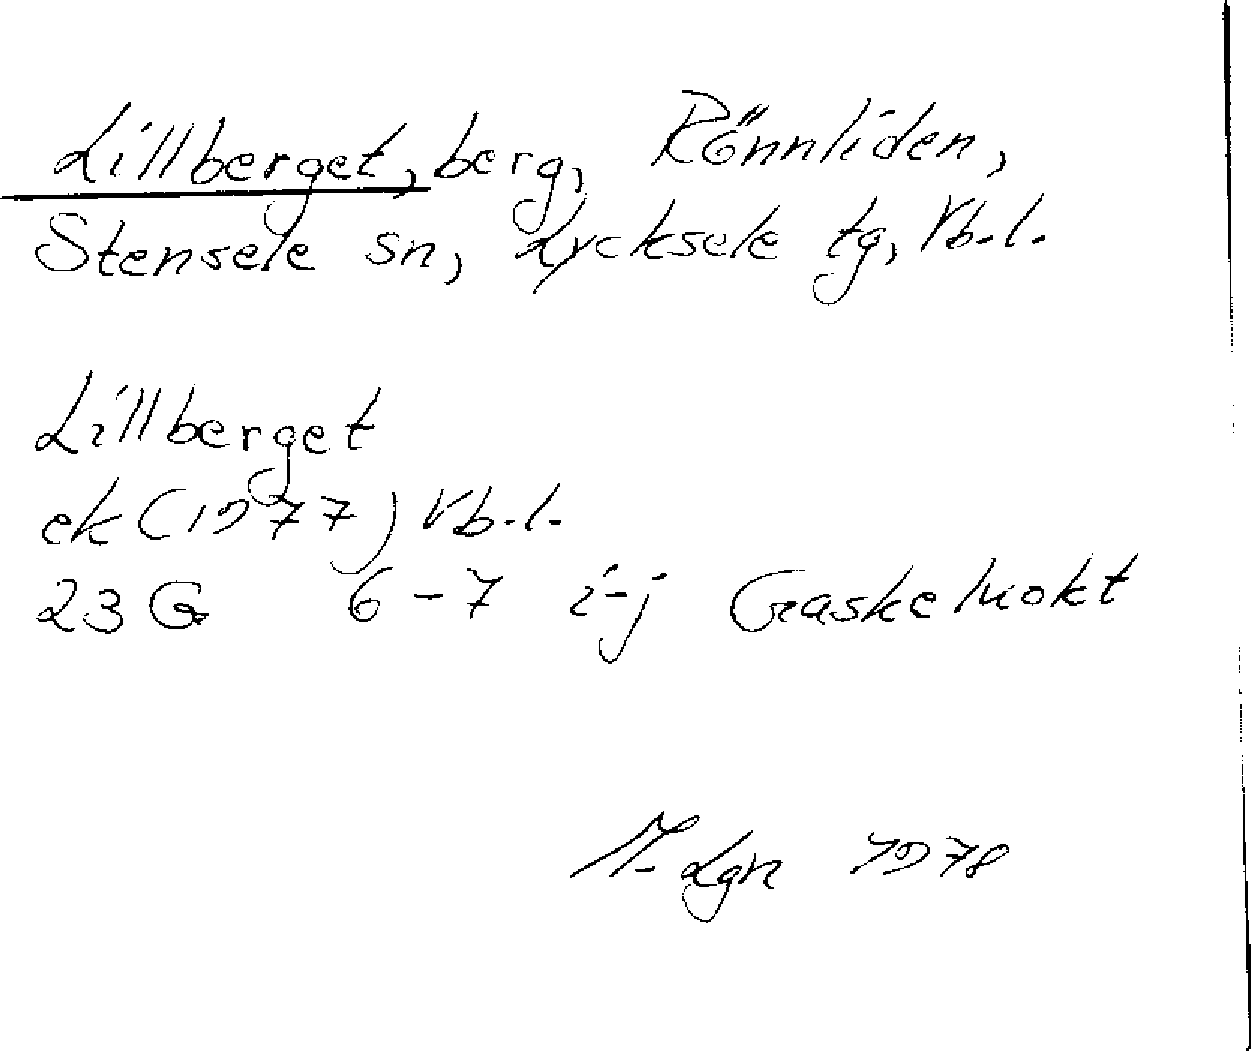 Lillberget, berg, Rönnliden,
Stensele sn, Lycksele tg, Vb.l.
Lillberget
ek (1977) Vb.l.
23 G 6-7 i-j Gaskeluokt
Lgn 1978